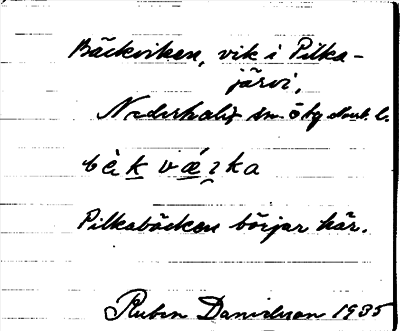 Bäckviken, vik i Pilka-
järvi,
Nederkalix sn ö
bè k v ǽ ɪ k a
Pilkabäcken börjar här.
Ruben Danielsson 1935